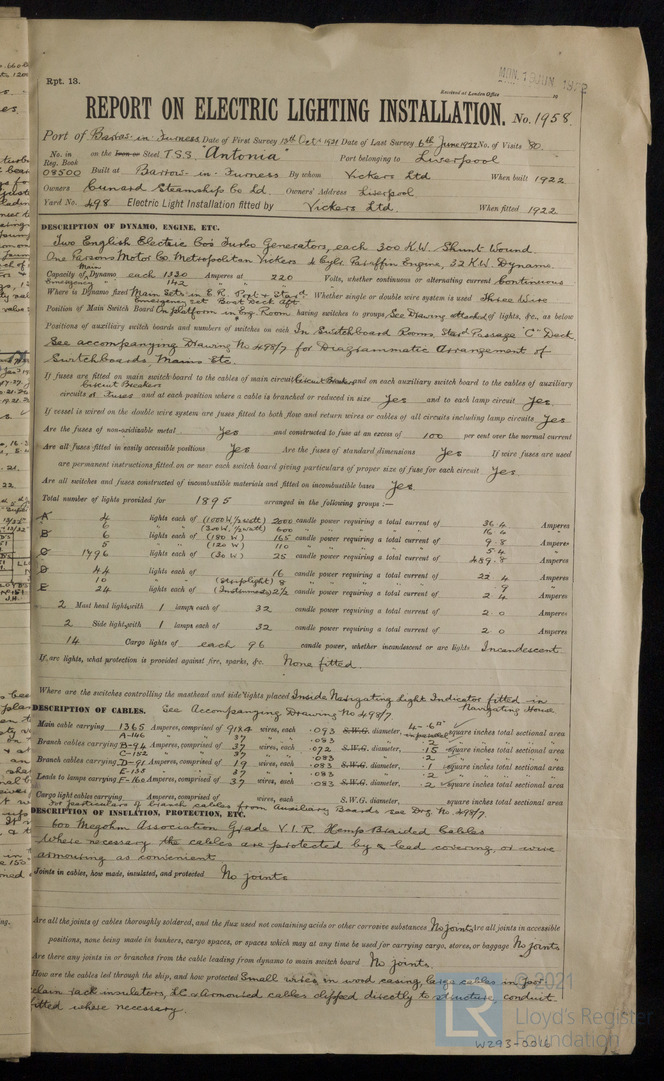 Rpt. 13.
MON. 19 JUN. 1922
Received at London Office
REPORT ON ELECTRIC LIGHTING INSTALLATION. No. 1958
Port of Barrow-in-Furness Date of First Survey 13th Oct 1921 Date of Last Survey 6th June 1922 No. of Visits 80
No. in Reg. Book 08500 on the Iron or Steel T.S.S "Antonia" Port belonging to Liverpool
Built at Barrow-in-Furness By whom Vickers Ltd When built 1922
Owners Cunard Steamship Co Ld. Owners' Address Liverpool
Yard No. 498 Electric Light Installation fitted by Vickers Ltd. When fitted 1922
DESCRIPTION OF DYNAMO, ENGINE, ETC.
Two English Electric Co's Turbo Generators, each 300 K.W. Shunt Wound.
One Parsons Motor Co. Metropolitan Vickers 4 Cylr Paraffin Engine, 32 K.W. Dynamo.
Capacity of Main Dynamo each 1330 Amperes at 220 Volts, whether continuous or alternating current Continuous
Emergency " 142 "
Where is Dynamo fixed Main Sets in E.R. Port & Stard. Whether single or double wire system is used Three Wire
Emergency set Boat Deck Aft
Position of Main Switch Board On platform in Eng. Room having switches to groups See Drawing attached of lights, &c., as below
Positions of auxiliary switch boards and numbers of switches on each In Switchboard Rooms, Stard Passage "C" Deck
See accompanying Drawing No 498/7 for Diagrammatic Arrangement of
Switchboards, Mains Etc.
If fuses are fitted on main switch board to the cables of main circuit Circuit Breakers and on each auxiliary switch board to the cables of auxiliary
Circuit Breakers
circuits & Fuses and at each position where a cable is branched or reduced in size Yes and to each lamp circuit Yes
If vessel is wired on the double wire system are fuses fitted to both flow and return wires or cables of all circuits including lamp circuits Yes
Are the fuses of non-oxidizable metal Yes and constructed to fuse at an excess of 100 per cent over the normal current
Are all fuses fitted in easily accessible positions Yes Are the fuses of standard dimensions Yes If wire fuses are used
are permanent instructions fitted on or near each switch board giving particulars of proper size of fuse for each circuit Yes
Are all switches and fuses constructed of incombustible materials and fitted on incombustible bases Yes
Total number of lights provided for 1895 arranged in the following groups :—
A 4 lights each of (1000 W. ½ watt) 2000 candle power requiring a total current of 36.4 Amperes
6 " " (300 W, ½ watt) 600 " " 16.4
B 6 lights each of (180 W) 165 candle power requiring a total current of 9.8 Amperes
5 " " (120 W) 110 " " 5.4
C 1796 lights each of (30 W) 25 candle power requiring a total current of 489.8 Amperes
D 44 lights each of 16 candle power requiring a total current of 22.4 Amperes
10 " " (striplight) 8 " " .9
E 24 lights each of (Instruments) 2½ candle power requiring a total current of 2.4 Amperes
2 Mast head light with 1 lamps each of 32 candle power requiring a total current of 2.0 Amperes
2 Side light with 1 lamps each of 32 candle power requiring a total current of 2.0 Amperes
14 Cargo lights of each 96 candle power, whether incandescent or arc lights Incandescent
If arc lights, what protection is provided against fire, sparks, &c. None fitted.
Where are the switches controlling the masthead and side lights placed Inside Navigating Light Indicator fitted in
Navigating House
DESCRIPTION OF CABLES. See Accompanying Drawing No 498/7.
Main cable carrying 1365 Amperes, comprised of 91x4 wires, each .093 S.W.G. diameter, 4-.60" in parallel square inches total sectional area
A-146 " 37 " .083 .2
Branch cables carrying B-94 Amperes, comprised of 37 wires, each .072 S.W.G. diameter, .15 square inches total sectional area
C-152 " 37 " .083 .2
Branch cables carrying D-91 Amperes, comprised of 19 wires, each .083 S.W.G. diameter, .1 square inches total sectional area
E-135 " 37 " .083 .2
Leads to lamps carrying F-160 Amperes, comprised of 37 wires, each .083 S.W.G. diameter, .2 square inches total sectional area
Cargo light cables carrying Amperes, comprised of wires, each S.W.G. diameter, square inches total sectional area
For particulars of branch cables from Auxiliary Boards see Drg No 498/7.
DESCRIPTION OF INSULATION, PROTECTION, ETC.
600 Megohm Association Grade V.I.R Hemp Braided Cables
Where necessary the cables are protected by a lead covering, or wire
armouring as convenient
Joints in cables, how made, insulated, and protected No joints
Are all the joints of cables thoroughly soldered, and the flux used not containing acids or other corrosive substances No joints Are all joints in accessible
positions, none being made in bunkers, cargo spaces, or spaces which may at any time be used for carrying cargo, stores, or baggage No joints
Are there any joints in or branches from the cable leading from dynamo to main switch board No joints.
How are the cables led through the ship, and how protected Small wires in wood casing, large cables in por-
clain rack insulators, LC & Armoured cables clipped directly to structure, conduit
fitted where necessary.
© 2021
LR
Lloyd's Register
Foundation
W293-0016